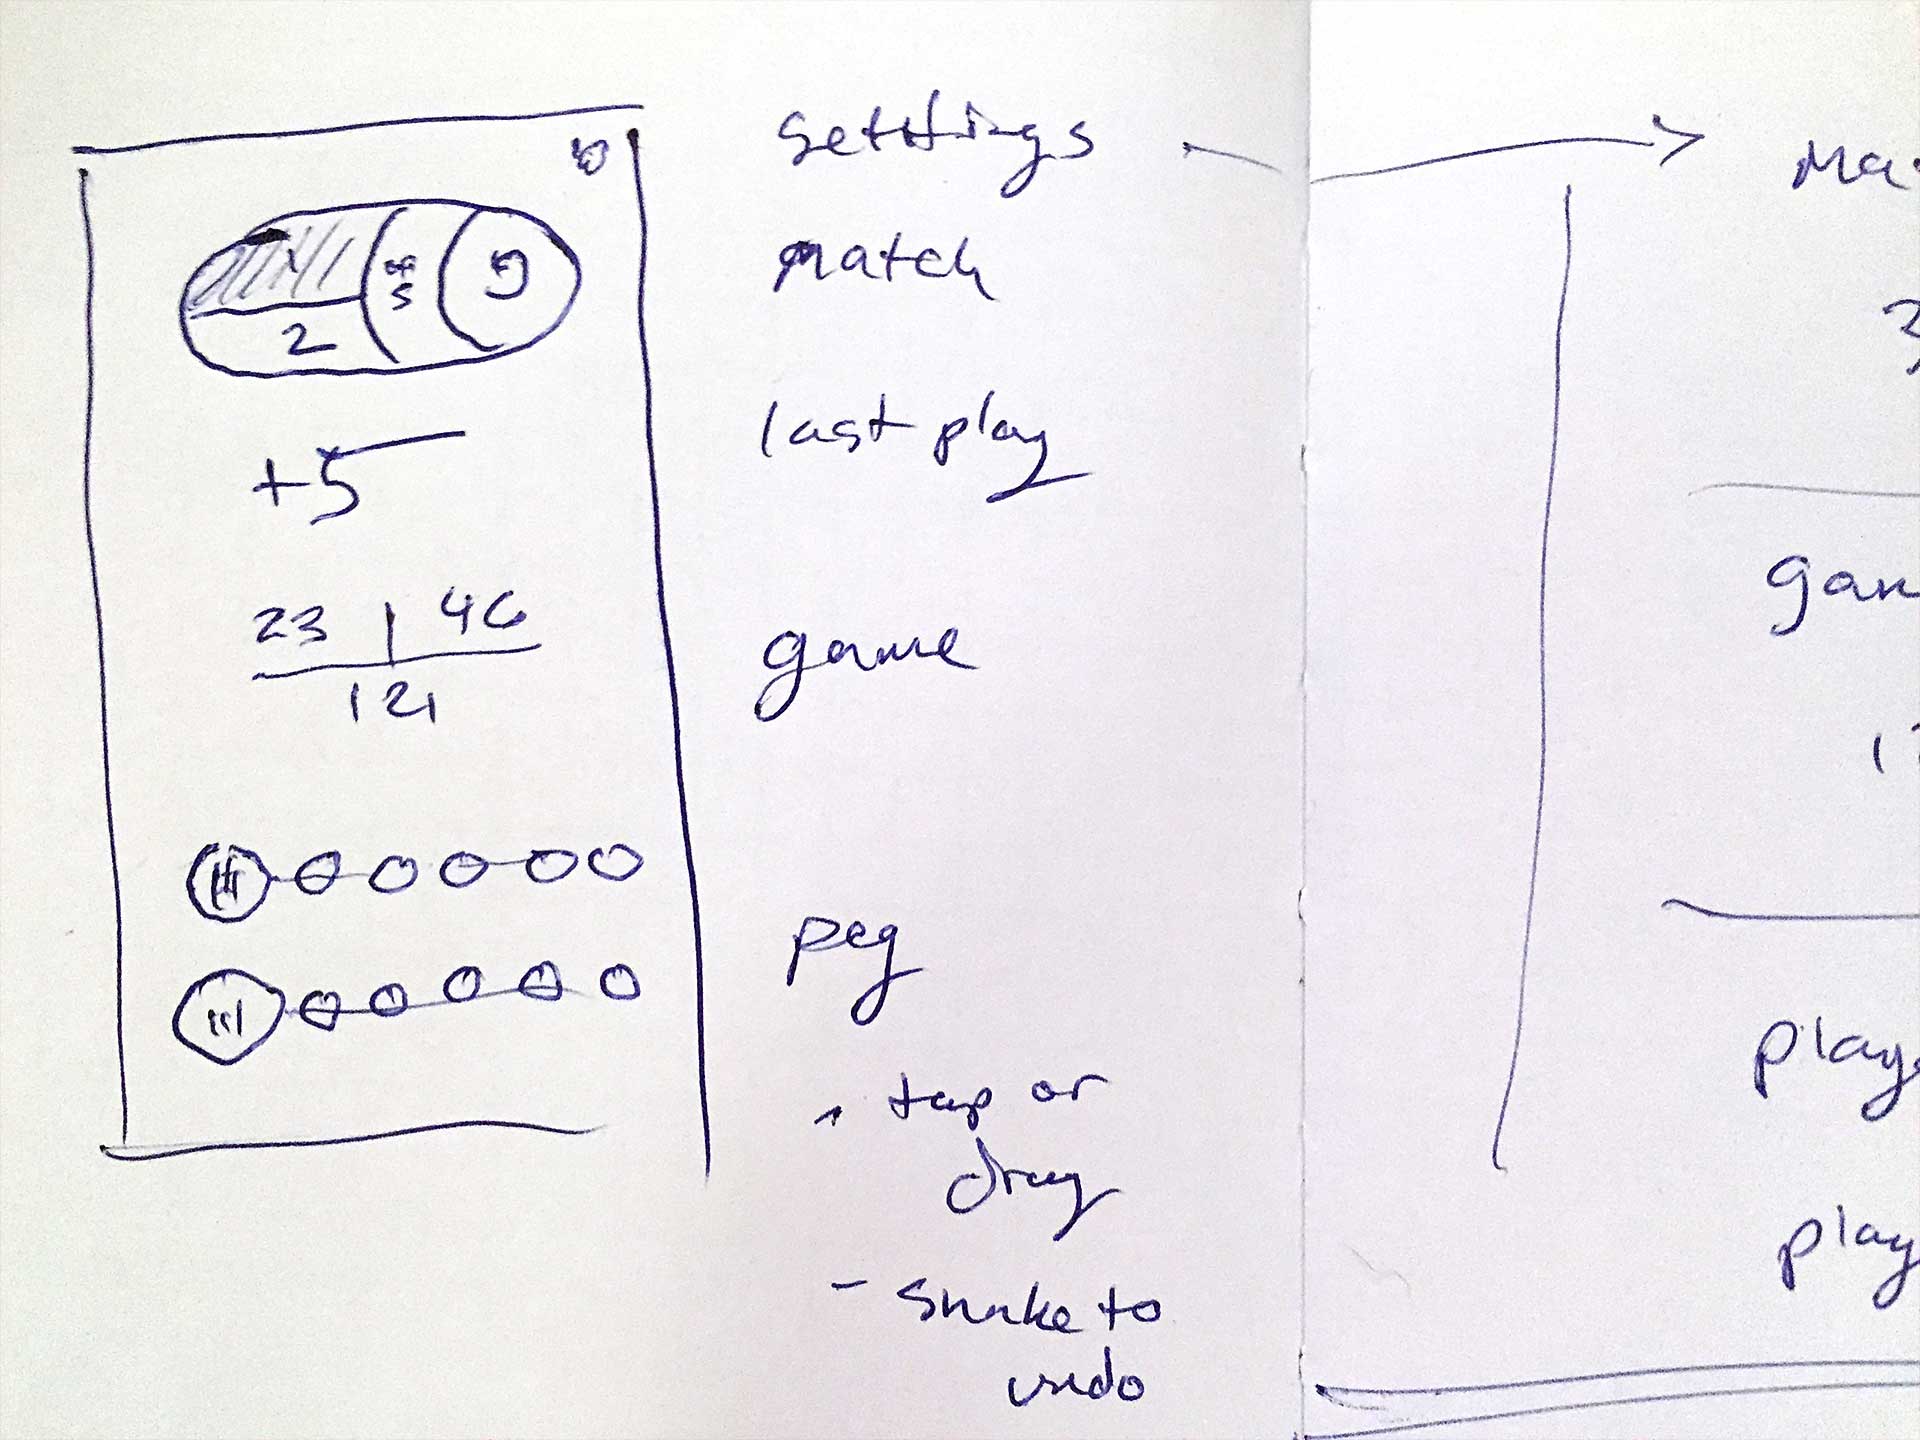 settings
match
2
of
5
last play
+5
23 | 46
121
game
peg
tap or
drag
- shake to
undo
Ma
3
gam
play
play